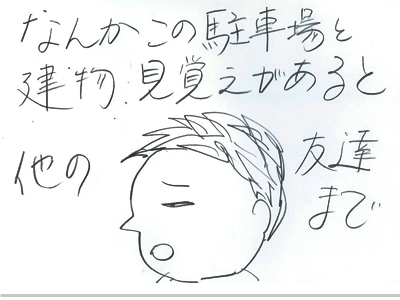 なんかこの駐車場と
建物、見覚えがあると
他の
友達
まで